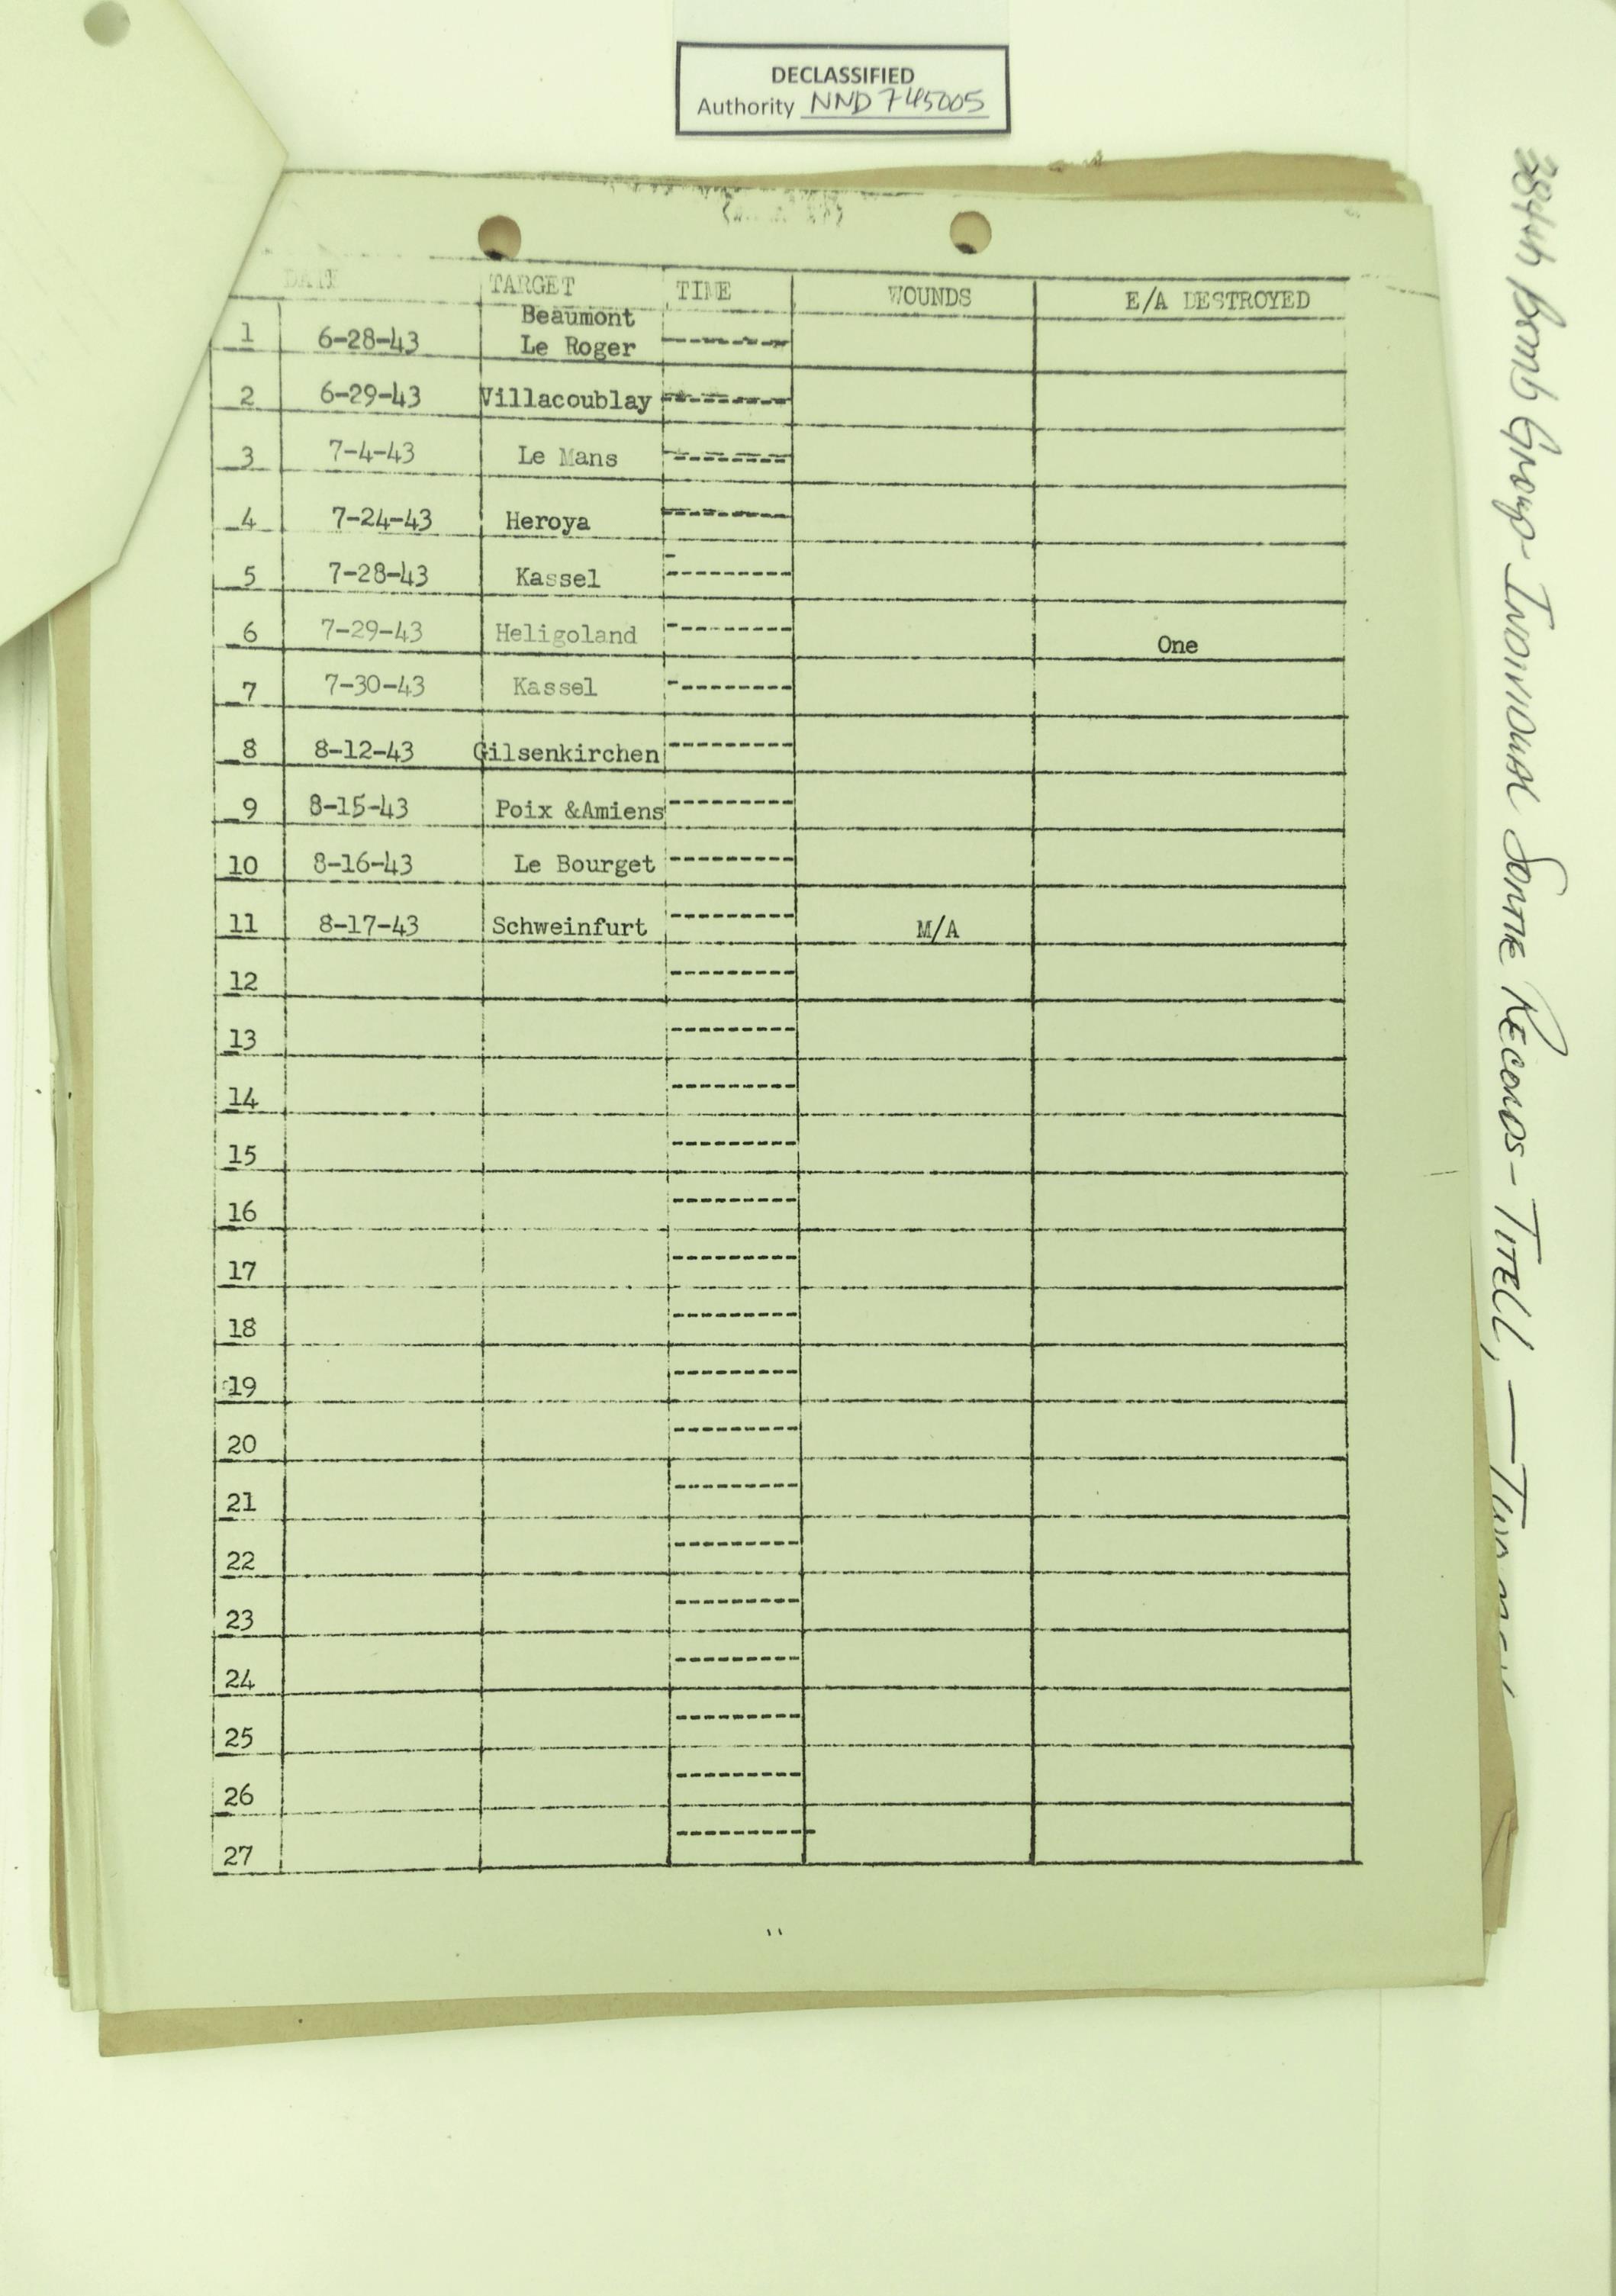 DECLASSIFIED
Authority NND 745005
DATE TARGET TIME WOUNDS E/A DESTROYED
1 6-28-43 Beaumont
Le Roger ---------
2 6-29-43 Villacoublay ---------
3 7-4-43 Le Mans ---------
4 7-24-43 Heroya ---------
5 7-28-43 Kassel ---------
6 7-29-43 Heligoland --------- One
7 7-30-43 Kassel ---------
8 8-12-43 Gilsenkirchen ---------
9 8-15-43 Poix &Amiens ---------
10 8-16-43 Le Bourget ---------
11 8-17-43 Schweinfurt --------- M/A
12 ---------
13 ---------
14 ---------
15 ---------
16 ---------
17 ---------
18 ---------
19 ---------
20 ---------
21 ---------
22 ---------
23 ---------
24 ---------
25 ---------
26 ---------
27 ----------
384th Bomb Group - Individual Sortie Records - Titell, —